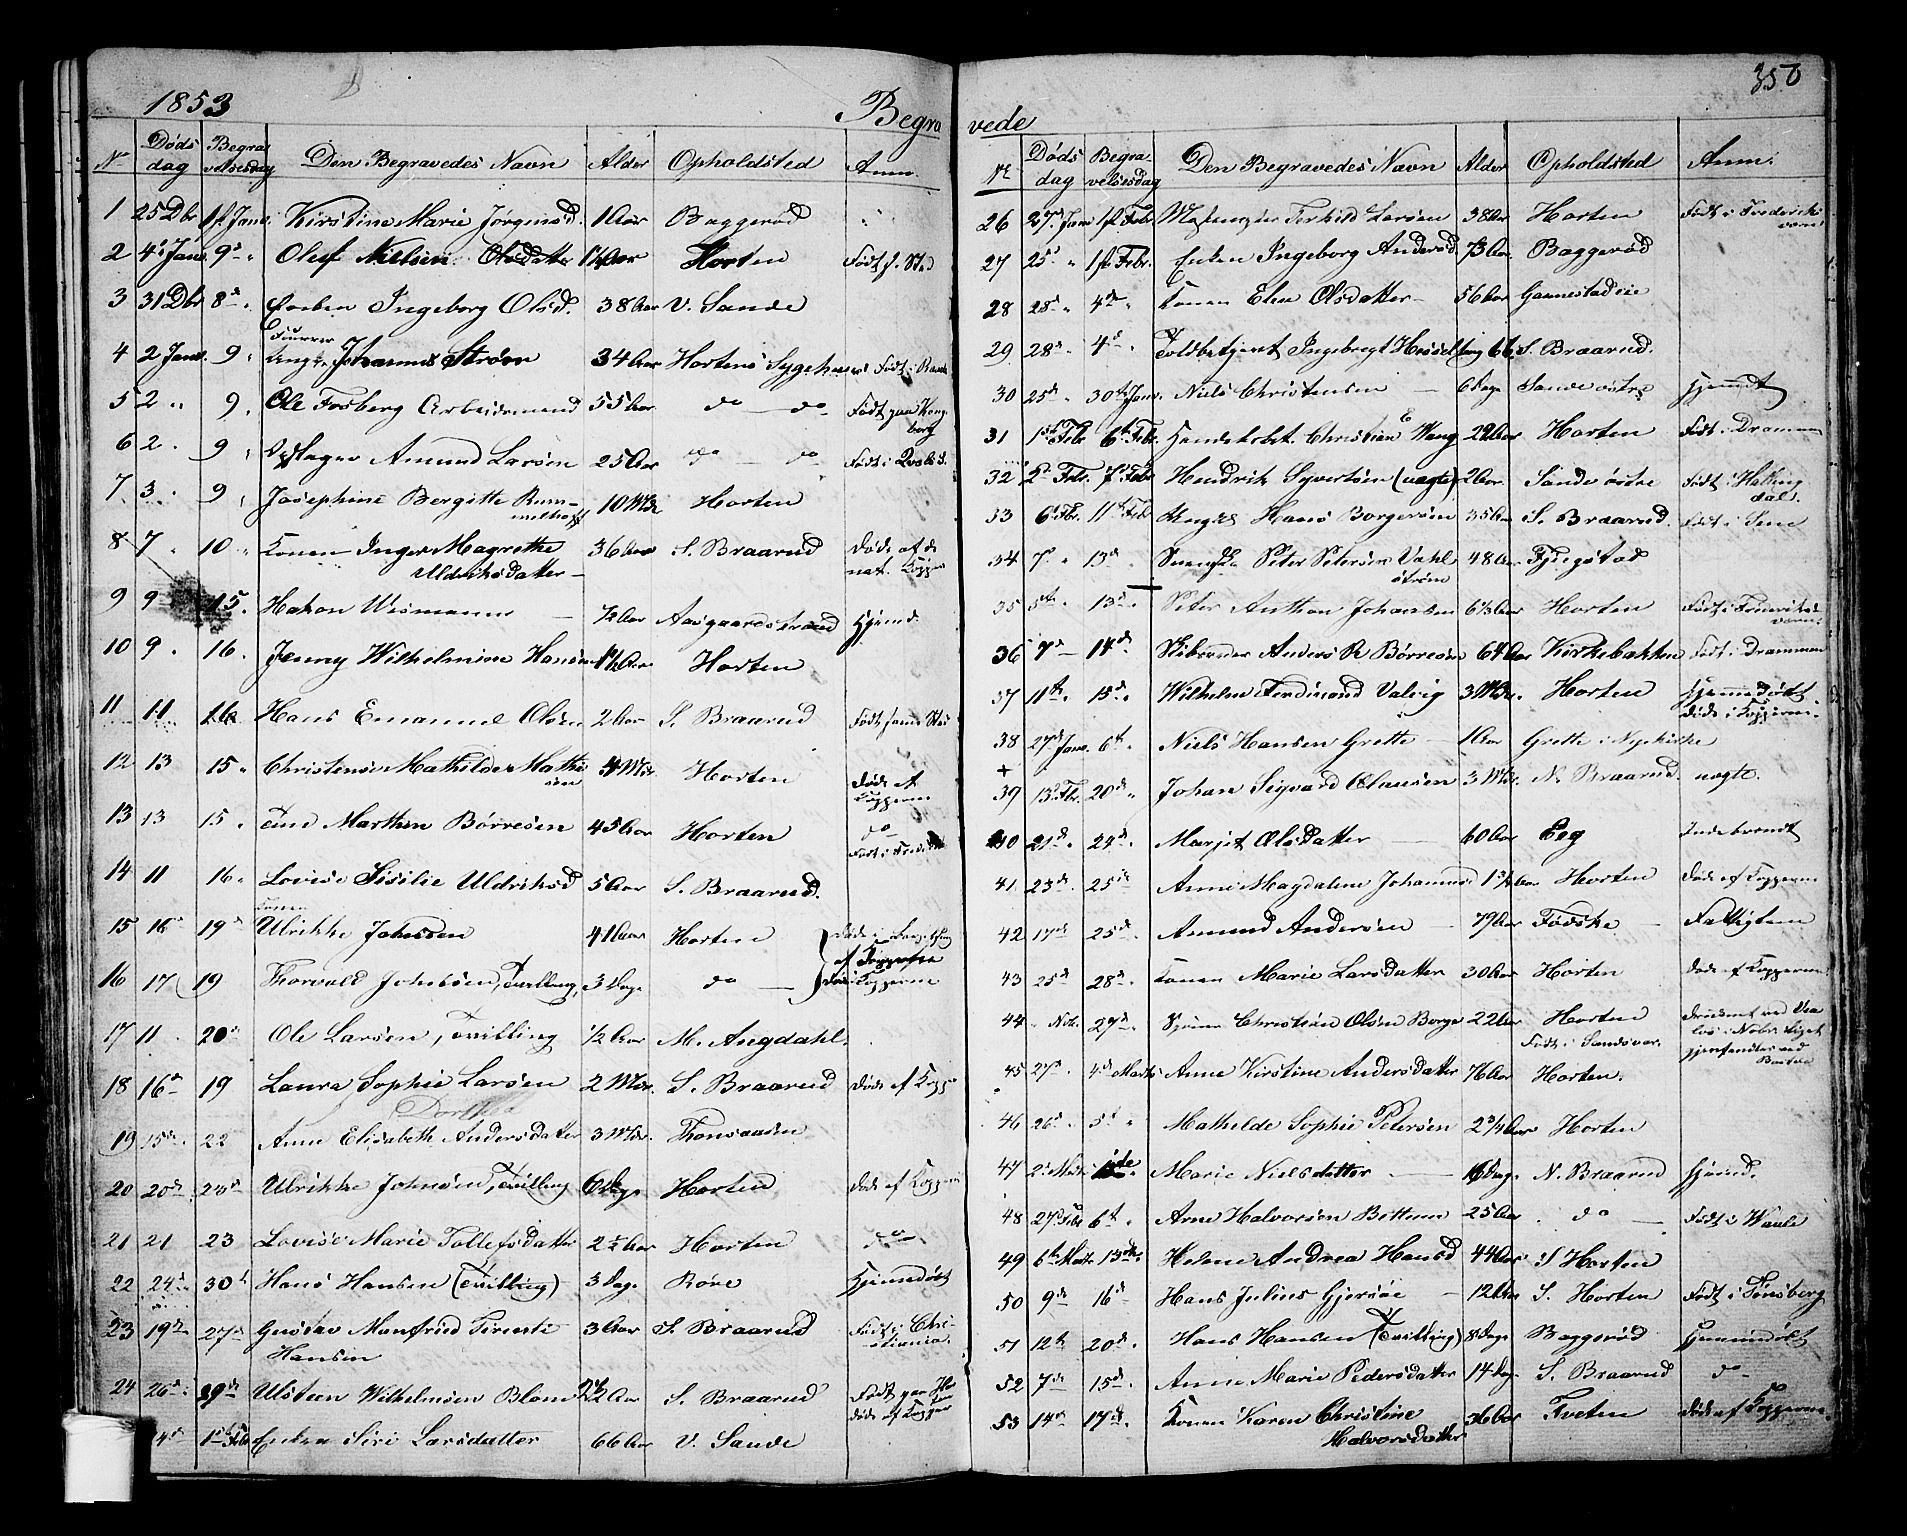 1853
Begra
N Døds dag Begravelsesdag Den Begravedes Navn Alder Opholdsted Anm.
1 25 Dbr 1st Janr. Kirstine Marie Jørgensd. 1 Aar Baggerød
2 4de Janr. 9de " Oluf Nielsen Aar Horten Født s. Sted
3 31 Dbr 8de " Ingeborg Olsd. 38 Aar V. Sande
4 2 Janr. 9 " Johannes Strøm 34 Aar Hortens Sygehuus Født i
5 2 " 9 " Ole Fosberg Arbeidsmand 55 Aar do — do Født paa Kongsberg
6 2 " 9 " Amund Larsen 25 Aar do — do Født i
7 3 " 9 " Josephine Bergitte Rummelhoff 10 Mdr Horten
8 7 " 10 " Konen Inger Magrethe Uldriksdatter 36 Aar S. Braarud Døde af de nat. Kopper
9 9 15. Hakon Wismanns ½ Aar Aasgaardstrand Hjemd.
10 9 " 16. Jenny Wilhelmine Hansen Aar Horten
11 11 16 Hans Emanuel Olsen 2 Aar S. Braarud Født samme Sted
12 13 15 " Christense Mathilde Mathisen 4 Mdr. Horten Døde af Kopperne
13 13 15 " Marthin Børresen 45 Aar Horten do Født i
14 11 16 " Lovise Sisilie Uldriksd 5 Aar S. Braarud.
15 16de 19de Konen Ulrikke Johnsen 41 Aar Horten Døde i af Kopperne
16 17 19 Thorvald Johnsen, Tvilling, 3 Dage do — Døde Kopperne
17 11 " 20de Ole Larsen, Tvilling ½ Aar M. Angdahl.
18 16de 19 Laura Sophie Larsen 2 Mdr. S. Braarud Døde af Kopper
Dorthea
19 15de 22 Anne Elisabeth Andersdatter 3 Mdr. Thonsaasen
20 20de 23de Ulrikke Johnsen, Tvilling 6 Dage Horten Døde af Kopper
21 21 23 Lovise Marie Tollefsdatter 2½ Aar Horten do
22 24de 30te Hans Hansen (Tvilling) 3 Dage Røre Hjemmedøbt
23 19de 27de Gustav Manfred Hansen 3 Aar S. Braarud Født i Christiania.
24 26de 29de Ulsteen Wilhelmsen Blom Aar S. Braarud Født paa Døde af Kopper
1ste Febr Enken Siri Larsdatter 66 Aar V. Sande
350
vede
N Døds dag Begravelsesdag Den Begravedes Navn Alder Opholdsted Anm.
26 27de Janr 1ste Febr. Terkild Larsen 38 Aar Horten Født i Frederiksværn
27 25de " 1ste Febr. Enken Ingeborg Andersd 73 Aar Baggerød
28 28de " 4de " Konen Elen Olsdatter 56 Aar Gannestadeie
29 28de " 4de " Toldbetjent Ingebregt Hesselberg 66 S. Braarud.
30 25de " 30te Janr. Niels Christensen — 6 Dage Sande østre Hjemdt
31 1ste Febr 6te Febr. Christian E Wang 29 Aar Horten Født i Drammen
32 2de Febr. 7de Febr Hendrik Syvertsen (uægte) 2 Aar Sande østre Født i Hallingdal.
33 6te Fbr. 11te Feb Hans Borgersen 35 Aar S. Braarud. Født i Sem
34 7de " 13de Peter Petersen Vahlstrøm 48 Aar Fyldpaa
35 5te " 13de " Peter Anthon Johansen 6½ Aar Horten Født i Frederiksværn
36 7de — 14de Anders R Børresen 64 Aar Kirkebakken Født i Drammen
37 11te " 15de " Wilhelm Ferdinand Valvig 3 Mdr. Horten Hjemmedøbt døde i Kopperne
38 27de Janr. 6te " Niels Hansen Grette — 1 Aar Grette i Nykirke
39 13de Fbr. 20de " Johan Sigvard Olausen 3 Mdr. N. Braarud uægte.
40 21de " 24de " Marjit Olsdatter — 60 Aar Eeg Indebrændt
41 23de. 25de Anne Magdalene Johannsd 1¾ Aar Horten Døde af Kopperne
42 17de 25de " Amund Andersen — 79 Aar Fødske — Fattiglem
43 25de 28de " Konen Marie Larsdatter 30 Aar Horten Døde af Kopperne
44 " Nobr. 27de " Christian Olsen Borge 22 Aar Horten Født i Sandsvær. Druknet ved Valøs i Nobr. Liget gjenfandtes ved Bastøe
45 27de " 4de Marts Anne Kirstine Andersdatter 76 Aar Horten.
46 26de " 5te " Mathilde Sophie Petersen 2¾ Aar Horten
47 2de Marts Marie Nielsdatter — 16 Dage N. Braarud Hjemd.
48 27de Febr 6te " Arne Halvorsen Bottum 25 Aar " do — Født i Waale
49 6te Marts 13de. Helene Andrea Hansd 44 Aar S Horten
50 9de 16de Hans Julius Gjersøe — 12 Aar S. Horten Født i Tønsberg
51 12te 20de. Hans Hansen (Tvilling) 8 Dage Baggerød Hjemmedøbt
52 7de 15de. Anne Marie Pedersdatter 14 Dage S. Braarud do —
53 14de 17de. Konen Karen Christine Halvorsdatter 36 Aar Tveten Døde af Kopperne.